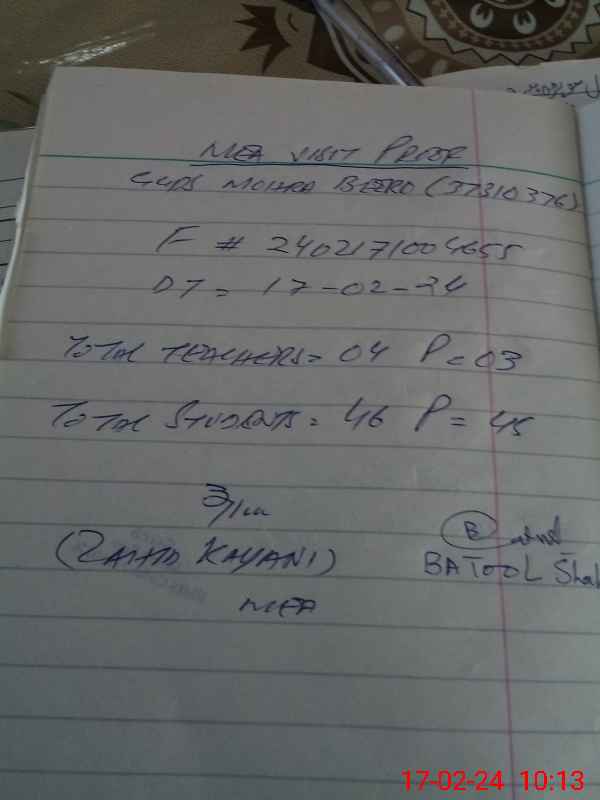 MEA VISIT PROOF
GGPS MOHRA BEERO (37310376)
F # 2402171004655
DT = 17-02-24
TOTAL TEACHERS = 04 P = 03
TOTAL STUDENTS = 46 P = 45
(ZAHID KAYANI)
MEA
B
BATOOL Shah
17-02-24 10:13